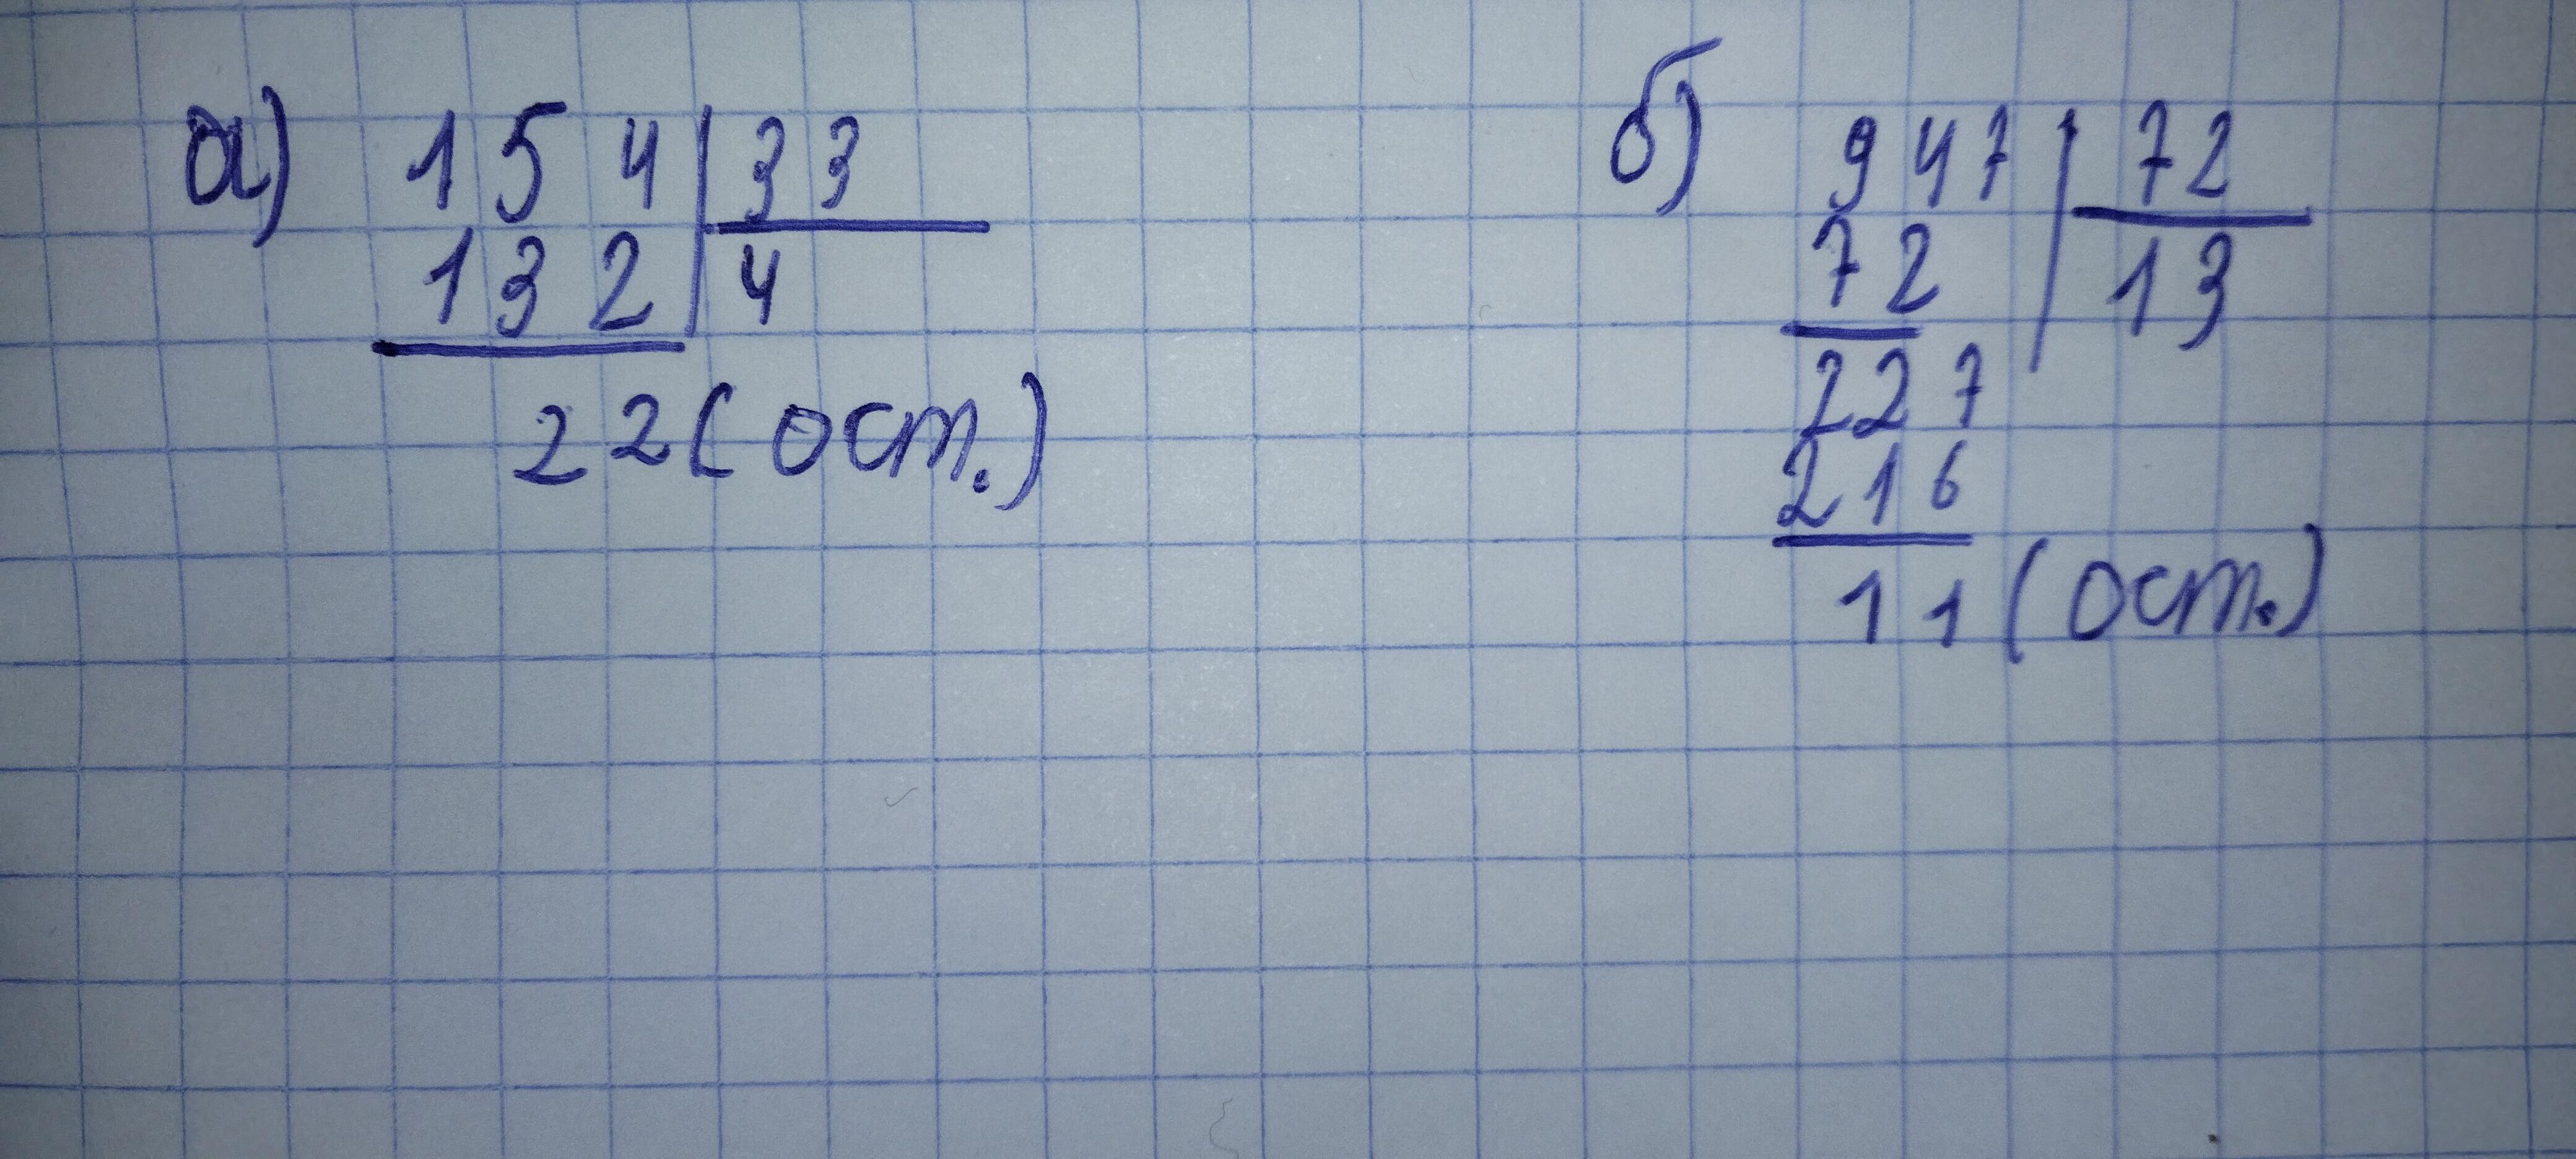 а) 154 33
132 4
22 (ост.)
б) 947 72
72 13
227
216
11 (ост.)